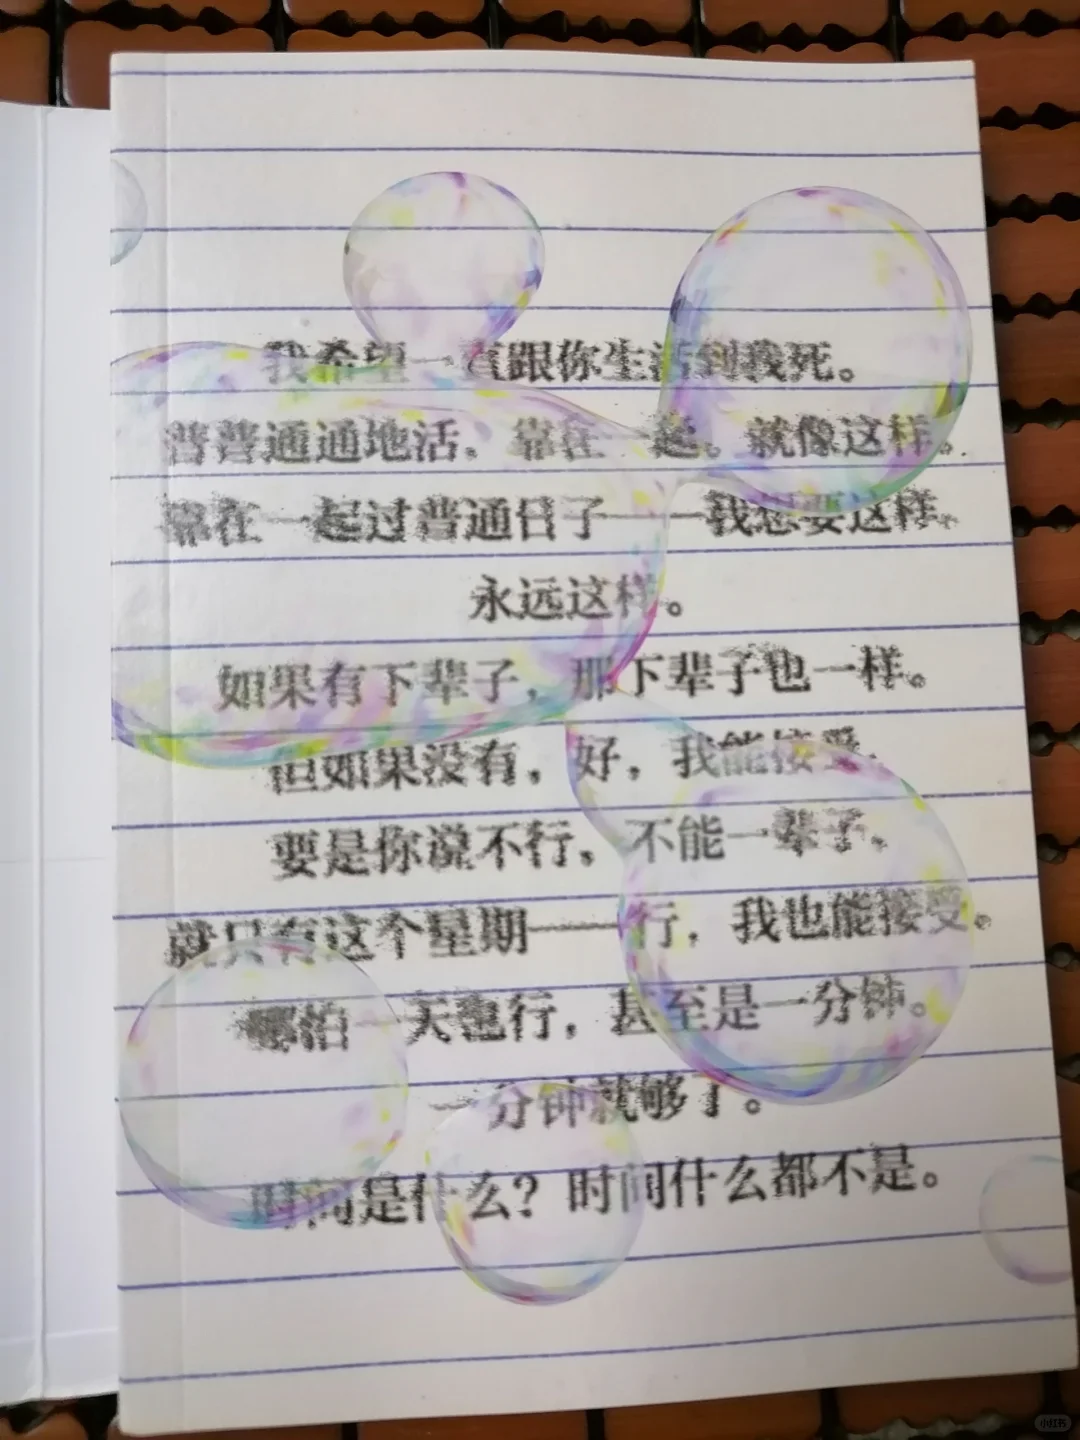 我希望一直跟你生活到我死。
普普通通地活，靠在一起。就像这样。
靠在一起过普通日子——我想要这样，
永远这样。
如果有下辈子，那下辈子也一样。
但如果没有，好，我能接受，
要是你说不行，不能一辈子，
就只有这个星期——行，我也能接受。
哪怕一天也行，甚至是一分钟。
一分钟就够了。
时间是什么？时间什么都不是。
小红书